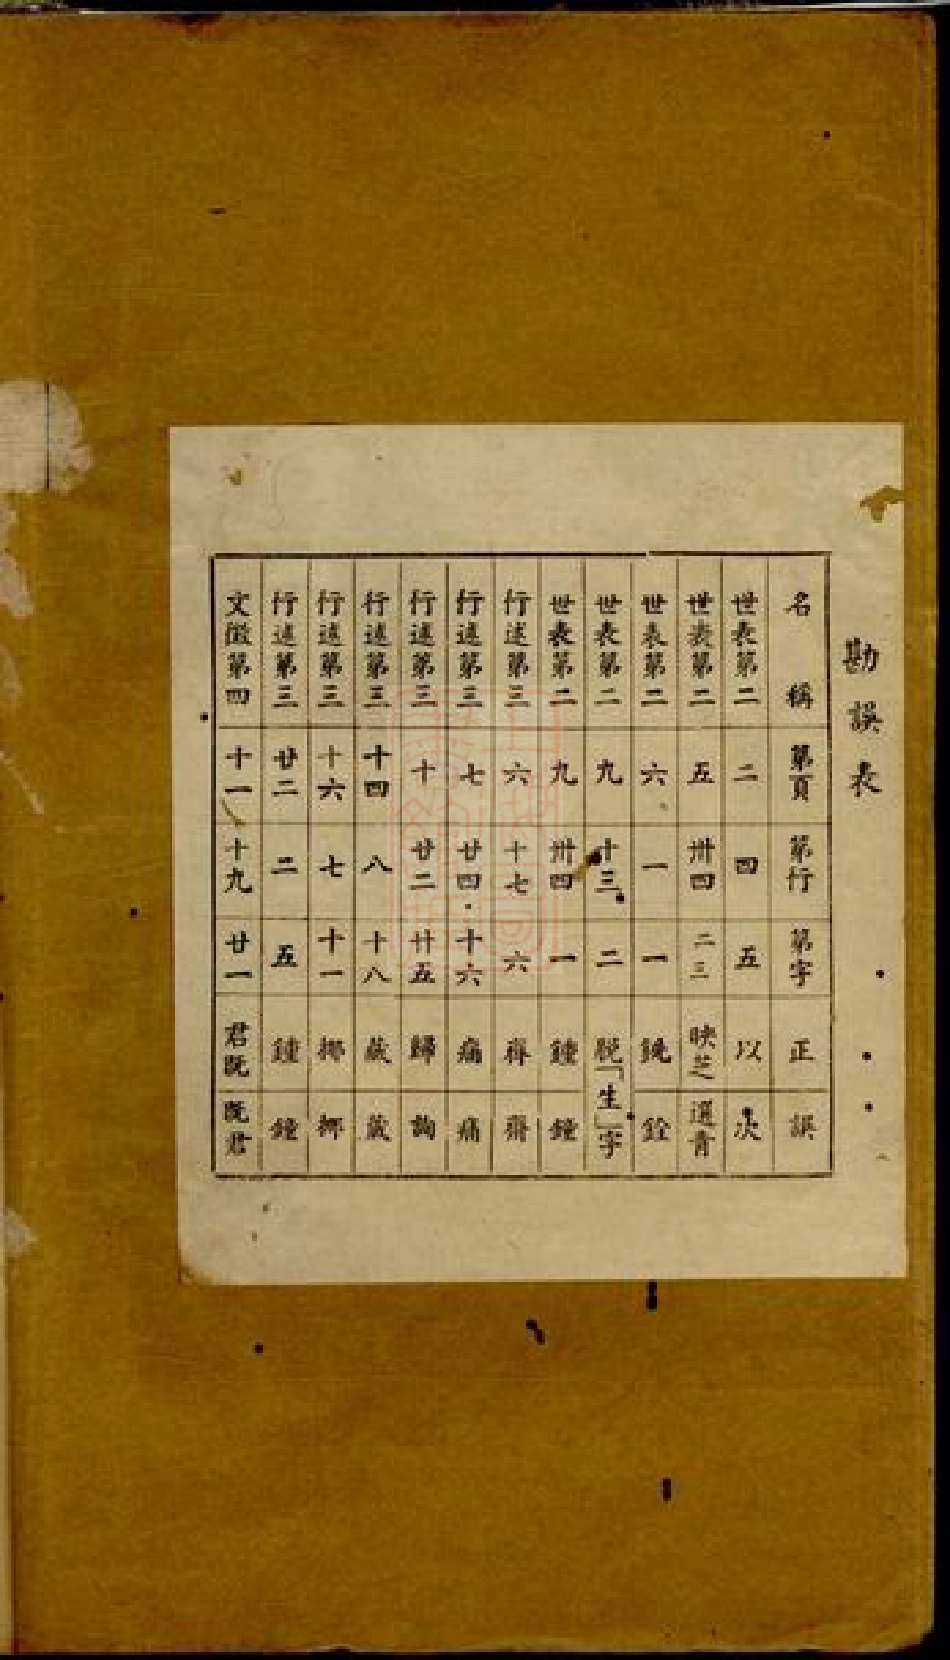 勘誤表
名稱 第頁 第行 第字 正 誤
世表第二 二 四 五 以 次
世表第二 五 卅四 二三 映芝 選青
世表第二 六 一 一 銓
世表第二 九 十三 二 脱「生」字
世表第二 九 卅四 一 鍾 鐘
行述第三 六 十七 六 齋
行述第三 七 廿四 十六 痛
行述第三 十 廿二 廿五 歸 詢
行述第三 十四 八 十八
行述第三 十六 七 十一
行述第三 廿二 二 五 鍾 鐘
文徵第四 十一 十九 廿一 君既 既君